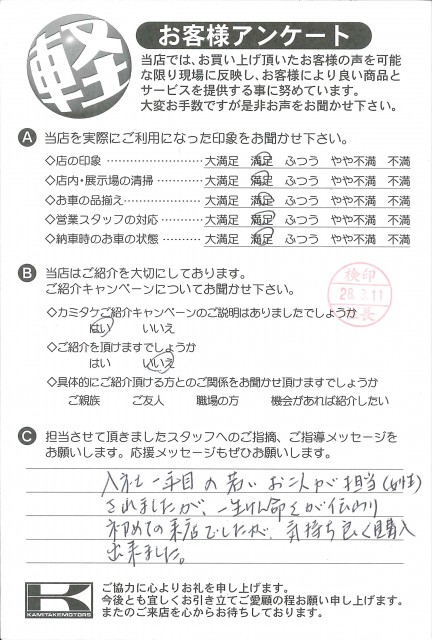 軽
お客様アンケート
当店では、お買い上げ頂いたお客様の声を可能
な限り現場に反映し、お客様により良い商品と
サービスを提供する事に努めています。
大変お手数ですが是非お声をお聞かせ下さい。
A 当店を実際にご利用になった印象をお聞かせ下さい。
◇店の印象 ……………………… 大満足 満足 ふつう やや不満 不満
◇店内・展示場の清掃 ………… 大満足 満足 ふつう やや不満 不満
◇お車の品揃え ………………… 大満足 満足 ふつう やや不満 不満
◇営業スタッフの対応 ………… 大満足 満足 ふつう やや不満 不満
◇納車時のお車の状態 ………… 大満足 満足 ふつう やや不満 不満
B 当店はご紹介を大切にしております。
ご紹介キャンペーンについてお聞かせ下さい。
検印
28.3.11
長
◇カミタケご紹介キャンペーンのご説明はありましたでしょうか
はい いいえ
◇ご紹介を頂けますでしょうか
はい いいえ
◇具体的にご紹介頂ける方とのご関係をお聞かせ頂けますでしょうか
ご親族 ご友人 職場の方 機会があれば紹介したい
C 担当させて頂きましたスタッフへのご指摘、ご指導メッセージを
お願いします。応援メッセージもぜひお願いします。
入社一年目の若いお二人が担当(女性)
されましたが、一生けん命さが伝わり
初めての来店でしたが、気持ち良く購入
出来ました。
K
KAMITAKEMOTORS
ご協力に心よりお礼を申し上げます。
今後とも宜しくお引き立てご愛顧の程お願い申し上げます。
またのご来店を心からお待ちしております。